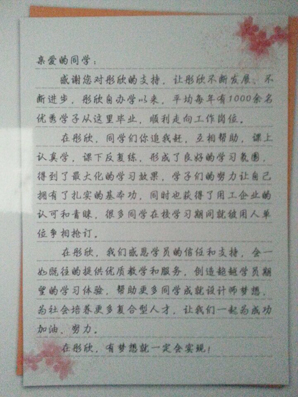 亲爱的同学：
感谢您对彤欣的支持，让彤欣不断发展、不
断进步，彤欣自办学以来，平均每年有1000余名
优秀学子从这里毕业，顺利走向工作岗位。
在彤欣，同学们你追我赶，互相帮助，课上
认真学，课下反复练，形成了良好的学习氛围，
得到了最大化的学习效果，学子们的努力让自己
拥有了扎实的基本功，同时也获得了用工企业的
认可和青睐，很多同学在校学习期间就被用人单
位争相抢订。
在彤欣，我们感恩学员的信任和支持，会一
如既往的提供优质教学和服务，创造超越学员期
望的学习体验，帮助更多同学成就设计师梦想，
为社会培养更多复合型人才，让我们一起为成功
加油，努力。
在彤欣，有梦想就一定会实现！